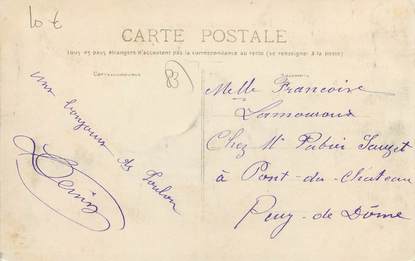 10 €
CARTE POSTALE
Tous les pays étrangers n'acceptent pas la correspondance au recto (se renseigner à la poste)
Correspondance
83
Melle Francoise
Lamouroux
Chez Mr Sauzet
à Pont-du-Château
Puy-de-Dôme
bonjour de Toulon
Denis